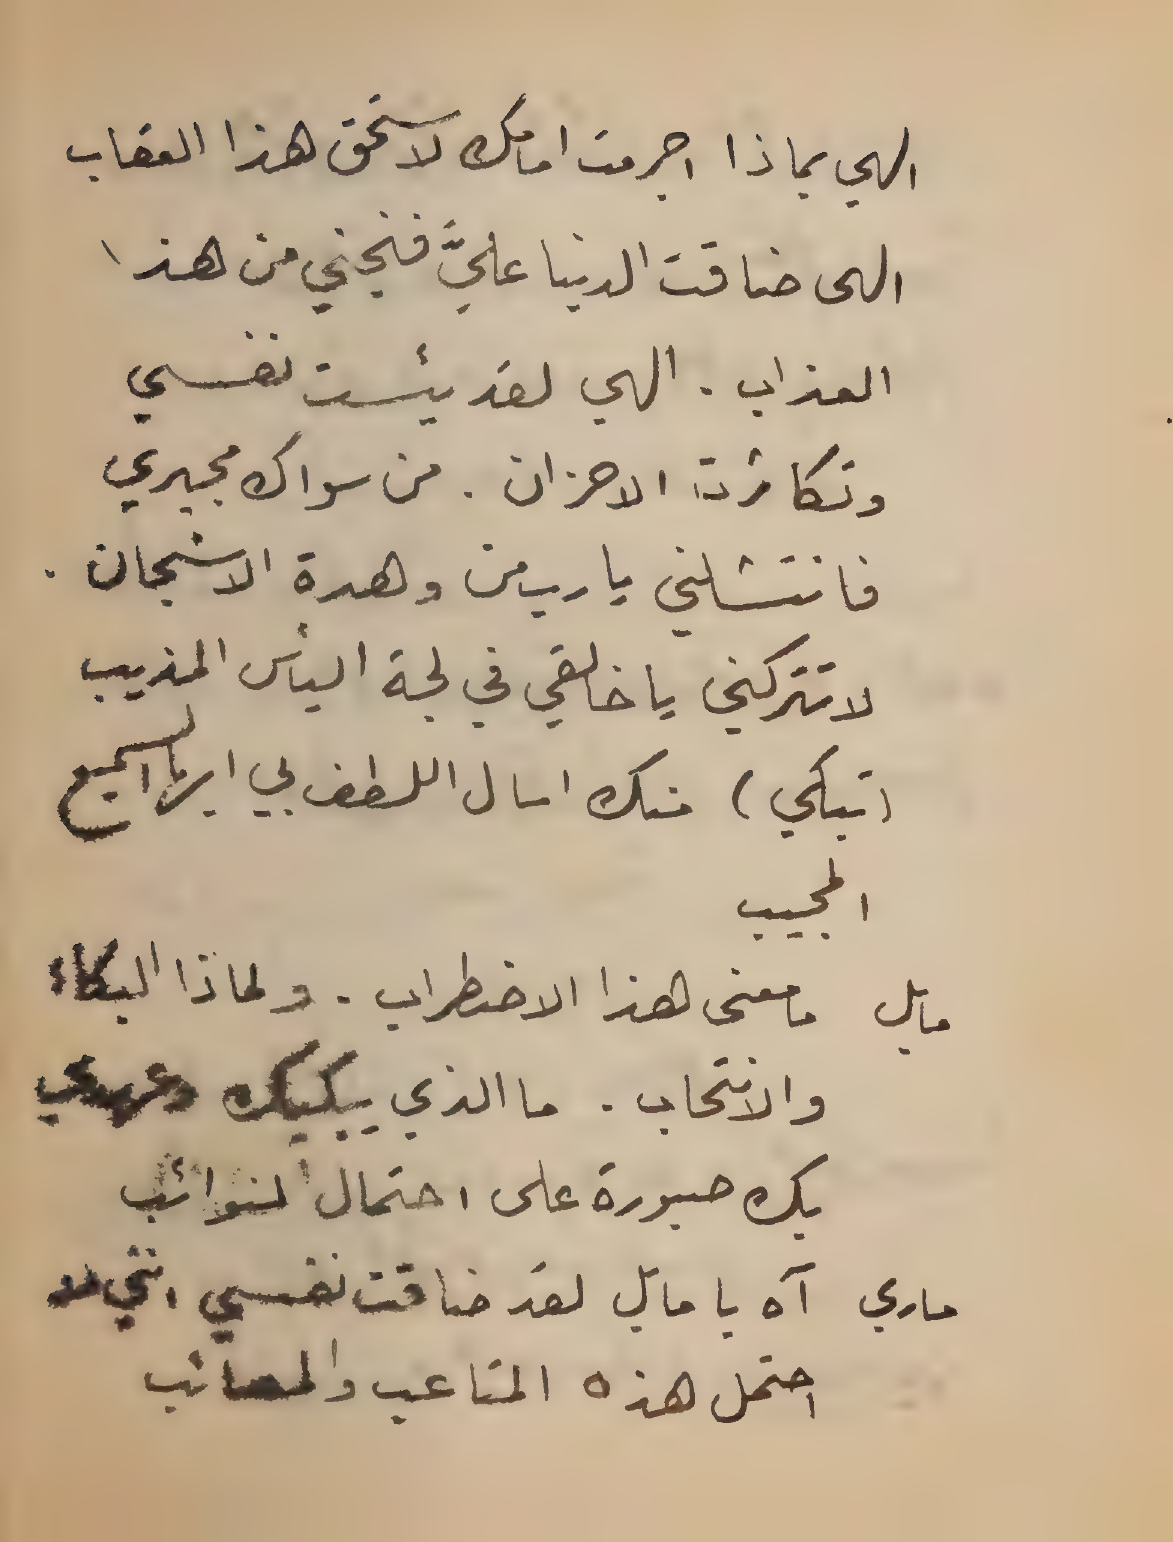 الهي بماذا اجرمت امامك لاستحق هذا العقاب
الهى ضاقت الدنيا عليَّ فنجني من هذا
العذاب . الهي لقد يئست نفسي
وتكاثرت الاحزان . من سواك مجيري
فانتشلني يا رب من وهدة الاشجان .
لا تتركني يا خالقي في لجة اليأس المذيب
(تبكي) منك امال اللطف بي ايها السميع
المجيب
مايل ما معنى هذا الاضطراب . ولماذا البكاء
والانتحاب . ما الذي يبكيك وعهدي
بك صبورة على احتمال النوائب
ماري آه يا مايل لقد ضاقت نفسي انني
احتمل هذه المتاعب والمصائب